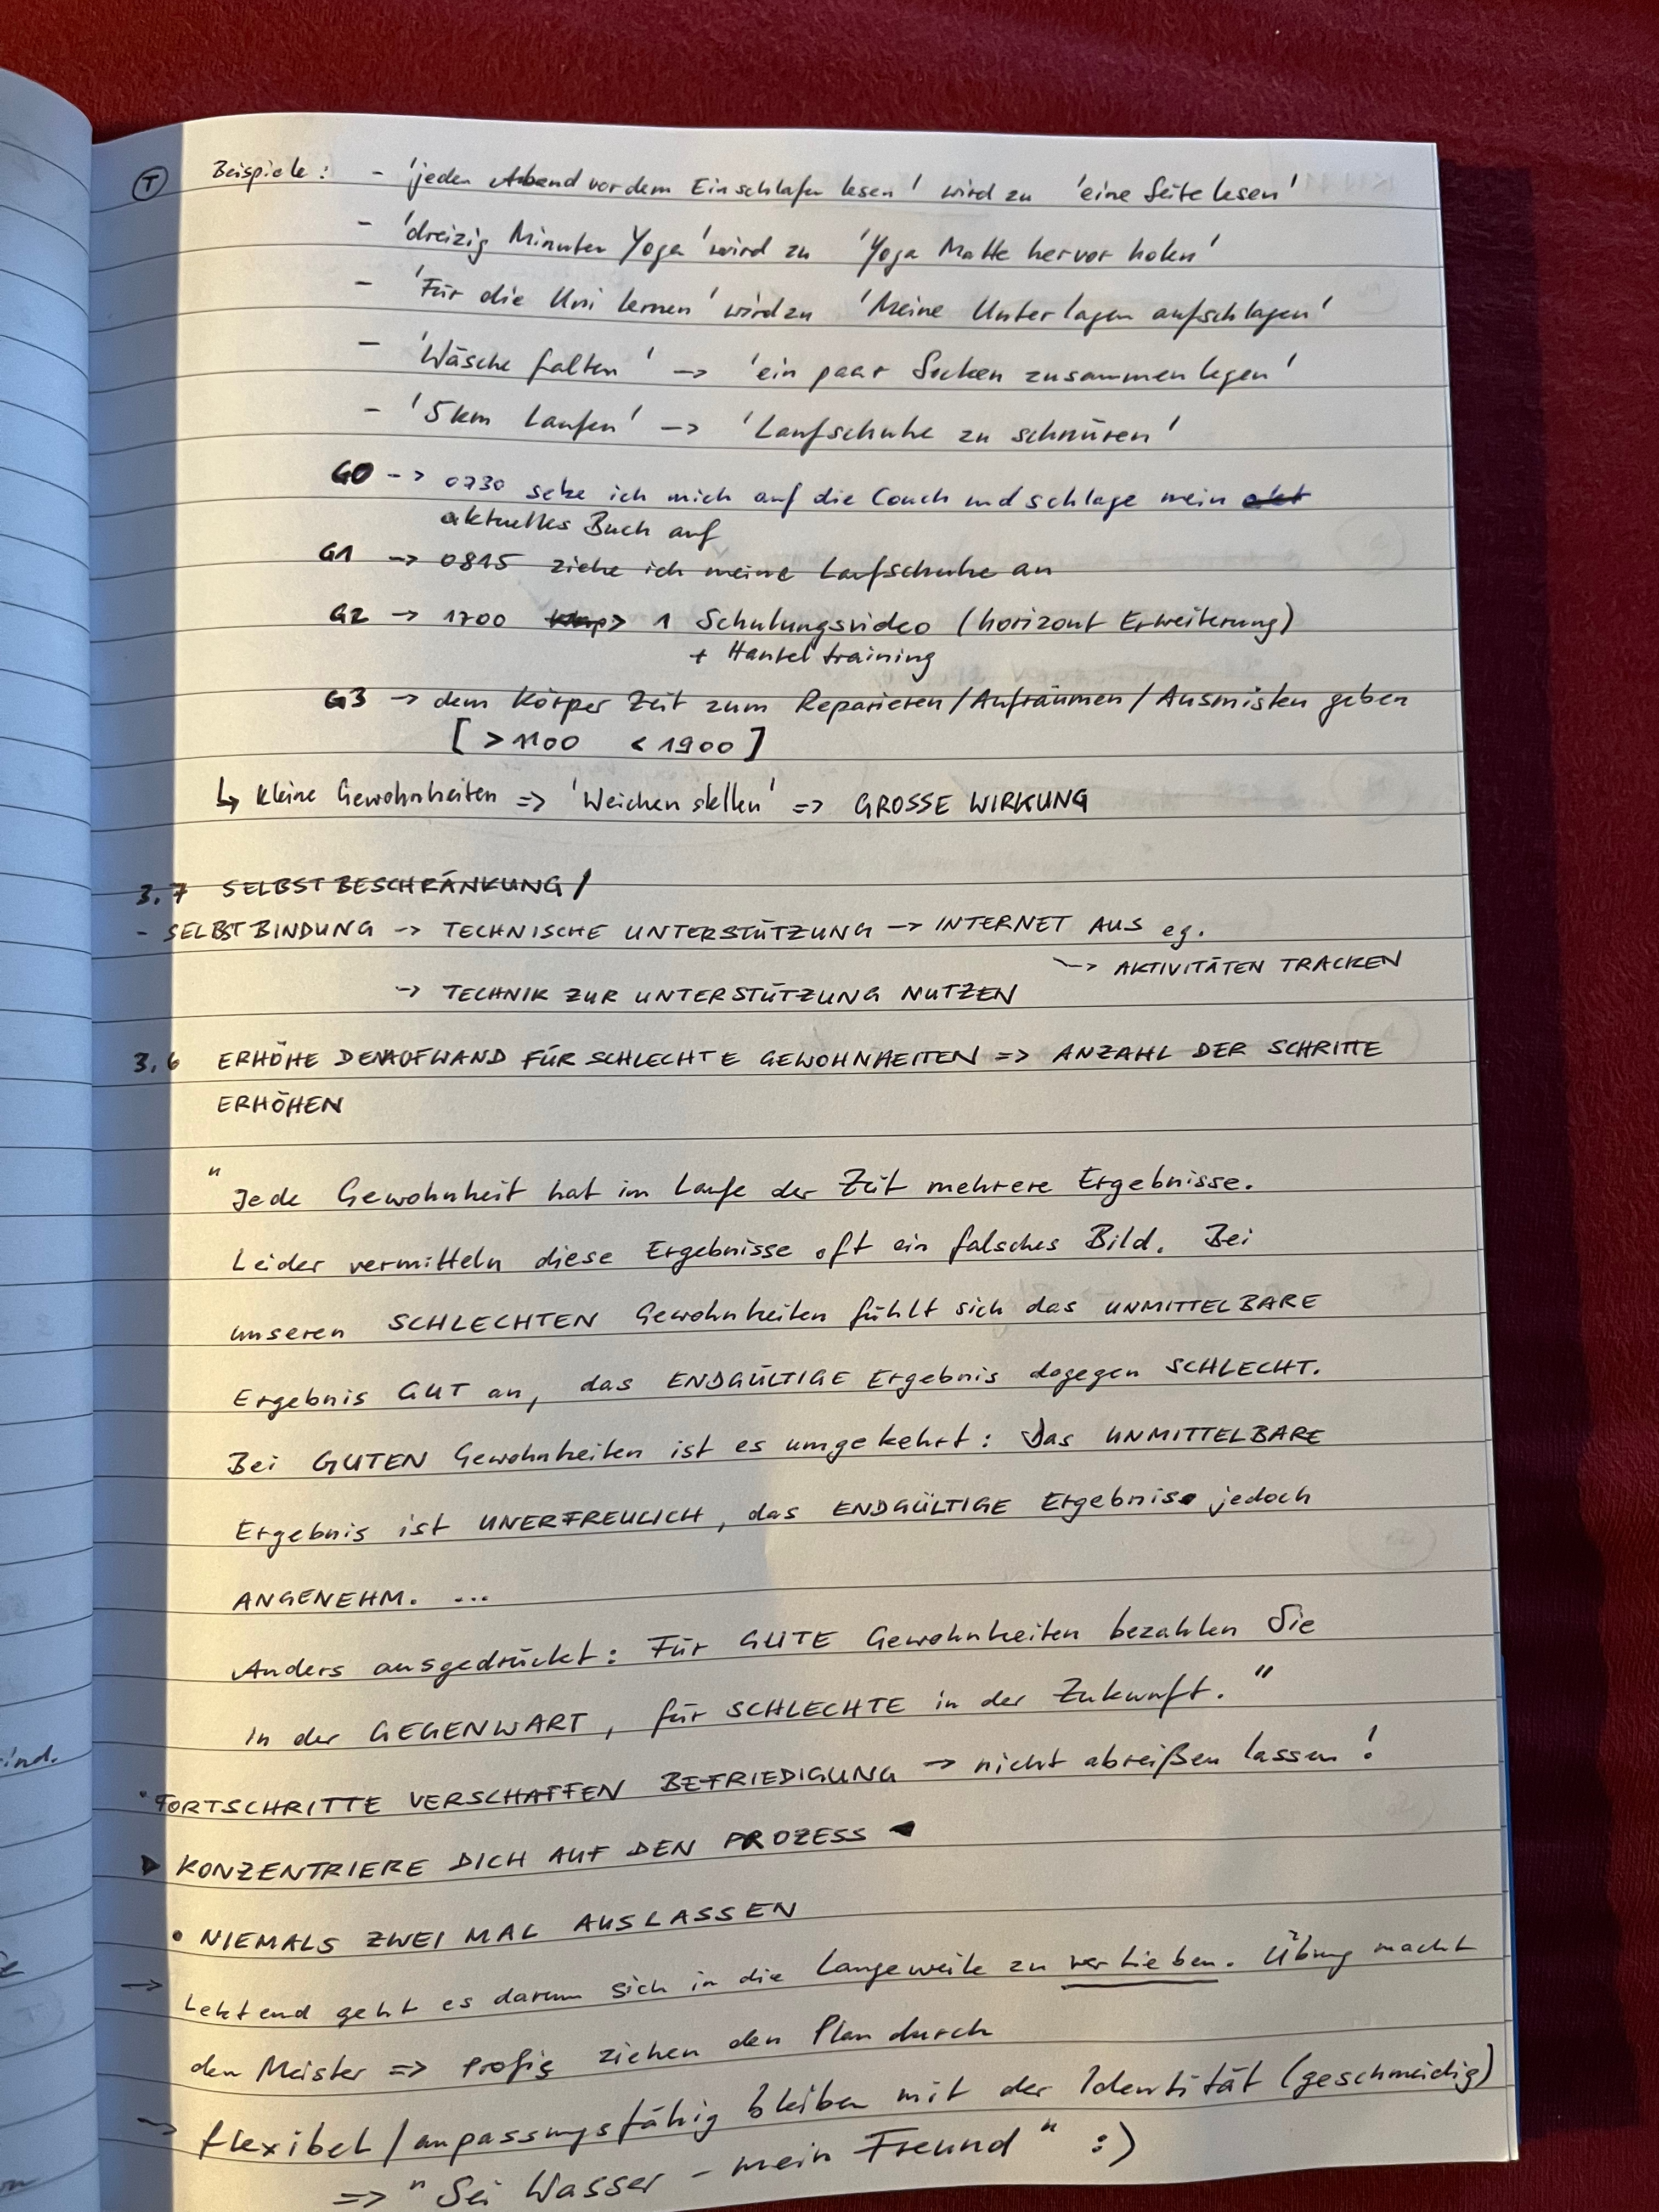 T Beispiele: - 'jeden Abend vor dem Einschlafen lesen' wird zu 'eine Seite lesen'
- 'dreizig Minuten Yoga' wird zu 'Yoga Matte hervor holen'
- 'Für die Uni lernen' wird zu 'Meine Unterlagen aufschlagen'
- 'Wäsche falten' -> 'ein paar Socken zusammen legen'
- '5km Laufen' -> 'Laufschuhe zu schnüren'
G0 -> 0730 setze ich mich auf die Couch und schlage mein akt
aktuelles Buch auf
G1 -> 0815 ziehe ich meine Laufschuhe an
G2 -> 1700 > 1 Schulungsvideo (horizont Erweiterung)
+ Hanteltraining
G3 -> dem Körper Zeit zum Reparieren/Aufräumen/Ausmisten geben
[ >1100 < 1900 ]
↳ kleine Gewohnheiten => 'Weichen stellen' => GROSSE WIRKUNG
3.7 SELBSTBESCHRÄNKUNG/
- SELBSTBINDUNG -> TECHNISCHE UNTERSTÜTZUNG -> INTERNET AUS eg.
-> AKTIVITÄTEN TRACKEN
-> TECHNIK ZUR UNTERSTÜTZUNG NUTZEN
3.6 ERHÖHE DEN AUFWAND FÜR SCHLECHTE GEWOHNHEITEN => ANZAHL DER SCHRITTE
ERHÖHEN
" Jede Gewohnheit hat im Laufe der Zeit mehrere Ergebnisse.
Leider vermitteln diese Ergebnisse oft ein falsches Bild. Bei
unseren SCHLECHTEN Gewohnheiten fühlt sich das UNMITTELBARE
Ergebnis GUT an, das ENDGÜLTIGE Ergebnis dagegen SCHLECHT.
Bei GUTEN Gewohnheiten ist es umgekehrt: Das UNMITTELBARE
Ergebnis ist UNERFREULICH, das ENDGÜLTIGE Ergebnis jedoch
ANGENEHM. ...
Anders ausgedrückt: Für GUTE Gewohnheiten bezahlen Sie
in der GEGENWART, für SCHLECHTE in der Zukunft. "
• FORTSCHRITTE VERSCHAFFEN BEFRIEDIGUNG -> nicht abreißen lassen!
▶ KONZENTRIERE DICH AUF DEN PROZESS ◀
• NIEMALS ZWEI MAL AUSLASSEN
-> Letztend geht es darum sich in die Langeweile zu verlieben. Übung macht
den Meister => Profis ziehen den Plan durch
-> flexibel/anpassungsfähig bleiben mit der Identität (geschmeidig)
=> " Sei Wasser - mein Freund " :)
ind.